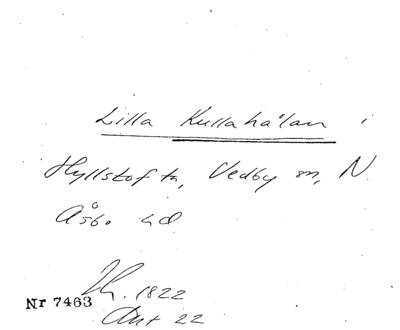 Lilla Kullahålan i
Hyllstofta, Vedby sn, N.
Åsbo hd
1822
Nr 7463
Akt 22